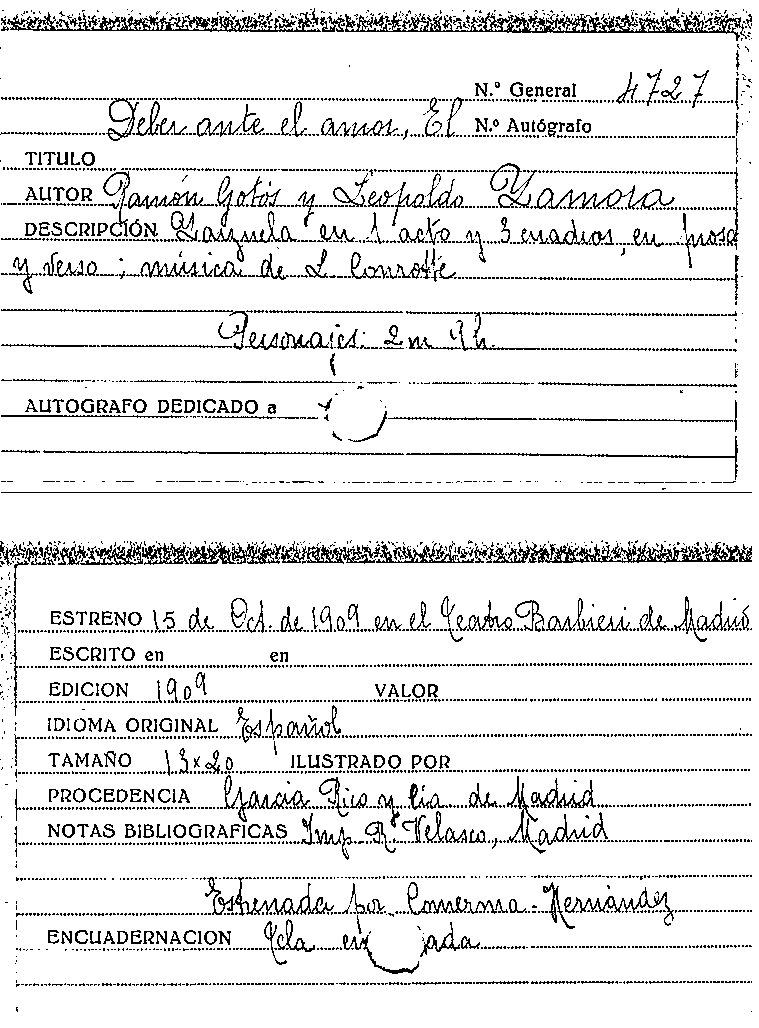 N.º General 4727
Deber ante el amor, El N.º Autógrafo
TITULO
AUTOR Ramón Gotós y Leopoldo Zamora
DESCRIPCIÓN Zarzuela en 1 acto y 3 cuadros, en prosa
y verso ; música de L. Conrotte
Personajes: 2 m 9 h.
AUTOGRAFO DEDICADO a
ESTRENO 15 de Oct. de 1909 en el Teatro Barbieri de Madrid
ESCRITO en en
EDICION 1909 VALOR
IDIOMA ORIGINAL Español
TAMAÑO 13x20 ILUSTRADO POR
PROCEDENCIA García Rico y Cía de Madrid
NOTAS BIBLIOGRAFICAS Imp. R. Velasco, Madrid
Estrenada por Comerma - Hernández
ENCUADERNACION Tela